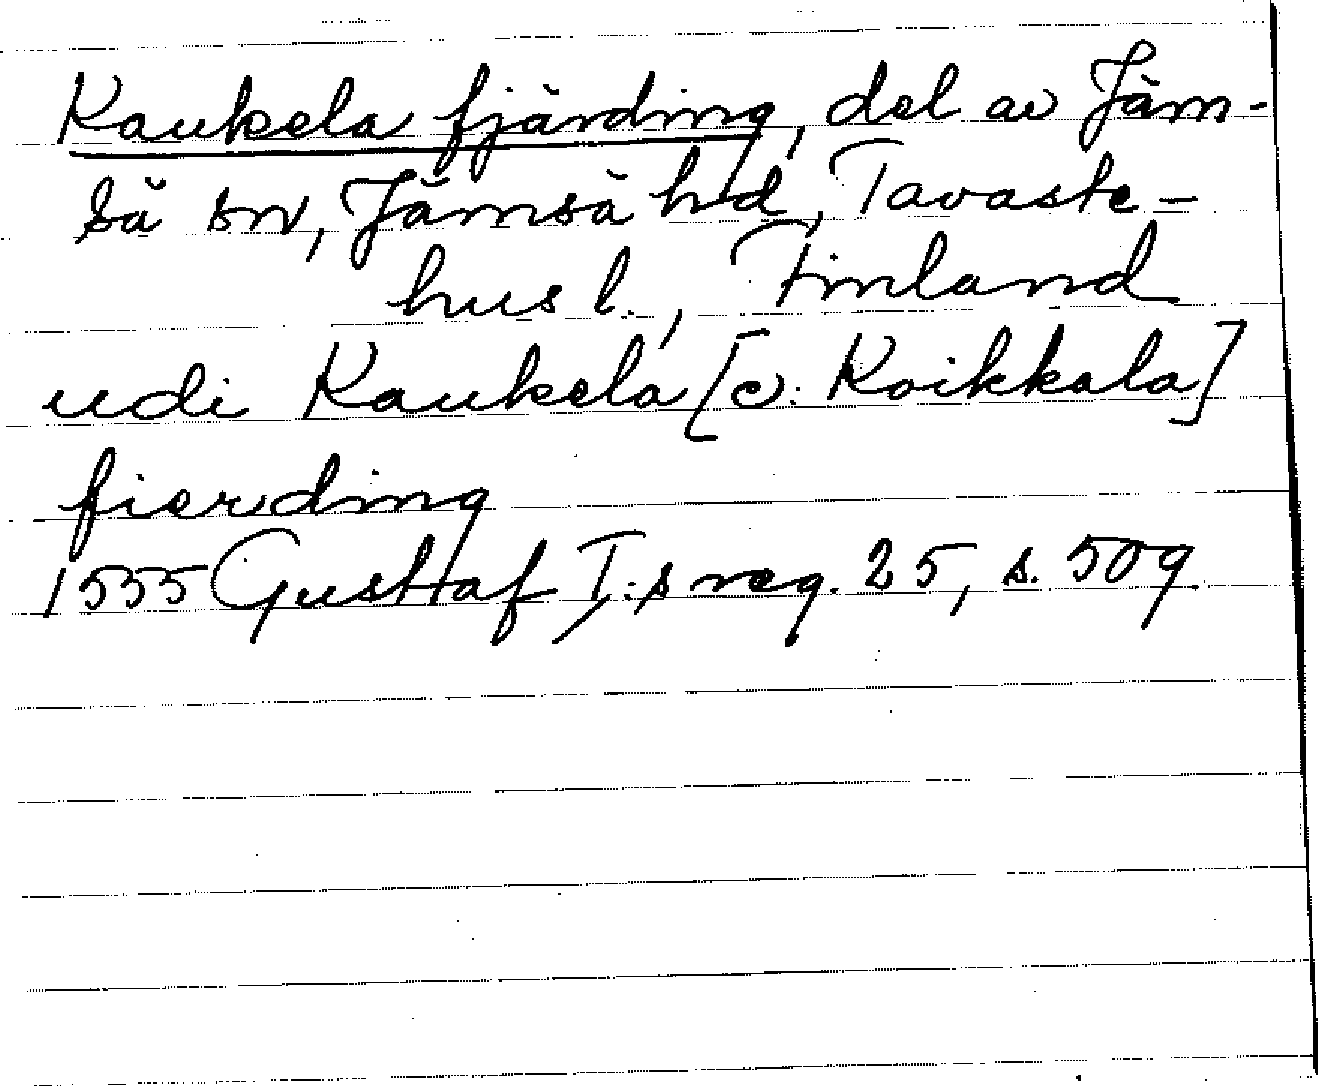 Kaukela fjärding, del av Jäm-
sä sn, Jämsä hd, Tavaste-
hus l., Finland
udi Kaukela [ɔ: Koikkala]
fierding
1555 Gustaf I:s reg. 25, s. 509